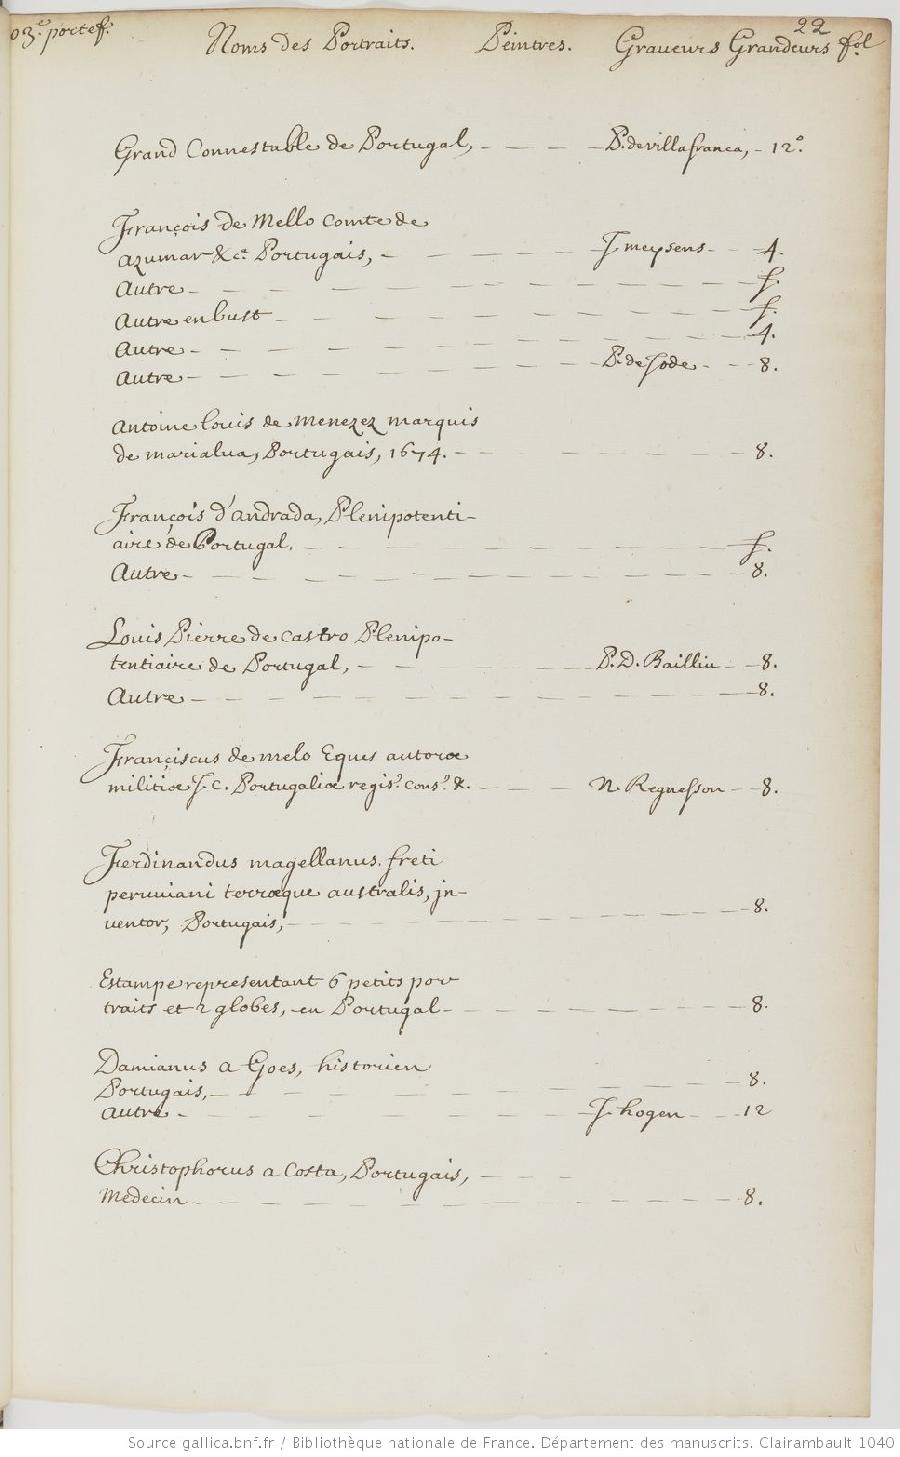 03.e portef. Noms des Portraits. Peintres. Graveurs Grandeurs fol
22
Grand Connestable de Portugal, - - - - P. de villafranca, - 12°.
François de Mello Comte de
azumar &ca Portugais, - - - - J meysens - - 4.
Autre - - - - f.
Autre en bust - - - - f.
Autre - - - - 4.
Autre - - - - P. de Jode - - 8.
Antoine louis de Menezez marquis
de marialva, Portugais, 1674. - - - - 8.
François d'andrada, Plenipotenti-
aire de Portugal. - - - - f.
Autre - - - - 8.
Louis Pierre de Castro Plenipo-
tentiaire de Portugal, - - - - P. D. Bailliu - - 8.
Autre - - - - 8.
Françiscus de melo Eques autoræ
militiæ J. C. Portugaliæ regis. cons. &. - - - - N Regnesson - - 8.
Ferdinandus magellanus, freti
peruviani terræque australis, jn-
ventor, Portugais, - - - - 8.
Estampe representant 6 petits por
traits et 2 globes, en Portugal - - - - 8.
Damianus a Goes, historien
Portugais, - - - - 8.
Autre - - - - J. hogen - - 12
Christophorus a Costa, Portugais, - - -
Medecin - - - - 8.
Source gallica.bnf.fr / Bibliothèque nationale de France. Département des manuscrits. Clairambault 1040